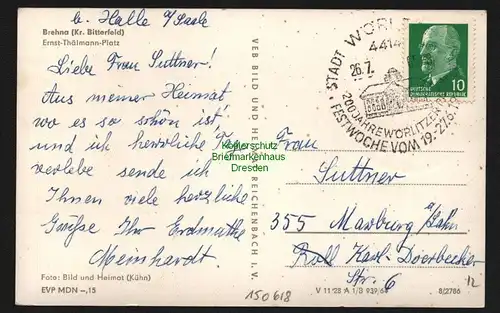 b. Halle a/Saale
Brehna (Kr. Bitterfeld)
Ernst-Thälmann-Platz
Liebe Frau Suttner!
Aus meiner Heimat
wo es so schön ist
und ich herrliche Tage
verlebe sende ich
Ihnen viele herzliche
Grüße Ihr Erdmuthe
Meinhardt.
Foto: Bild und Heimat (Kühn)
EVP MDN –,15
VEB BILD UND HEIMAT REICHENBACH I. V.
STADT WÖRL
4414
26.7.
200 JAHRE WÖRLITZER
FESTWOCHE VOM 19.-27.6.
10
DEUTSCHE DEMOKRATISCHE REPUBLIK
Kohlerschutz
Briefmarkenhaus
Dresden
Frau
Suttner
355 Marburg a/Lahn
Karl-Doerbecker
Str. 6
150618
V 11 28 A 1/B 939/64
8/2786
12